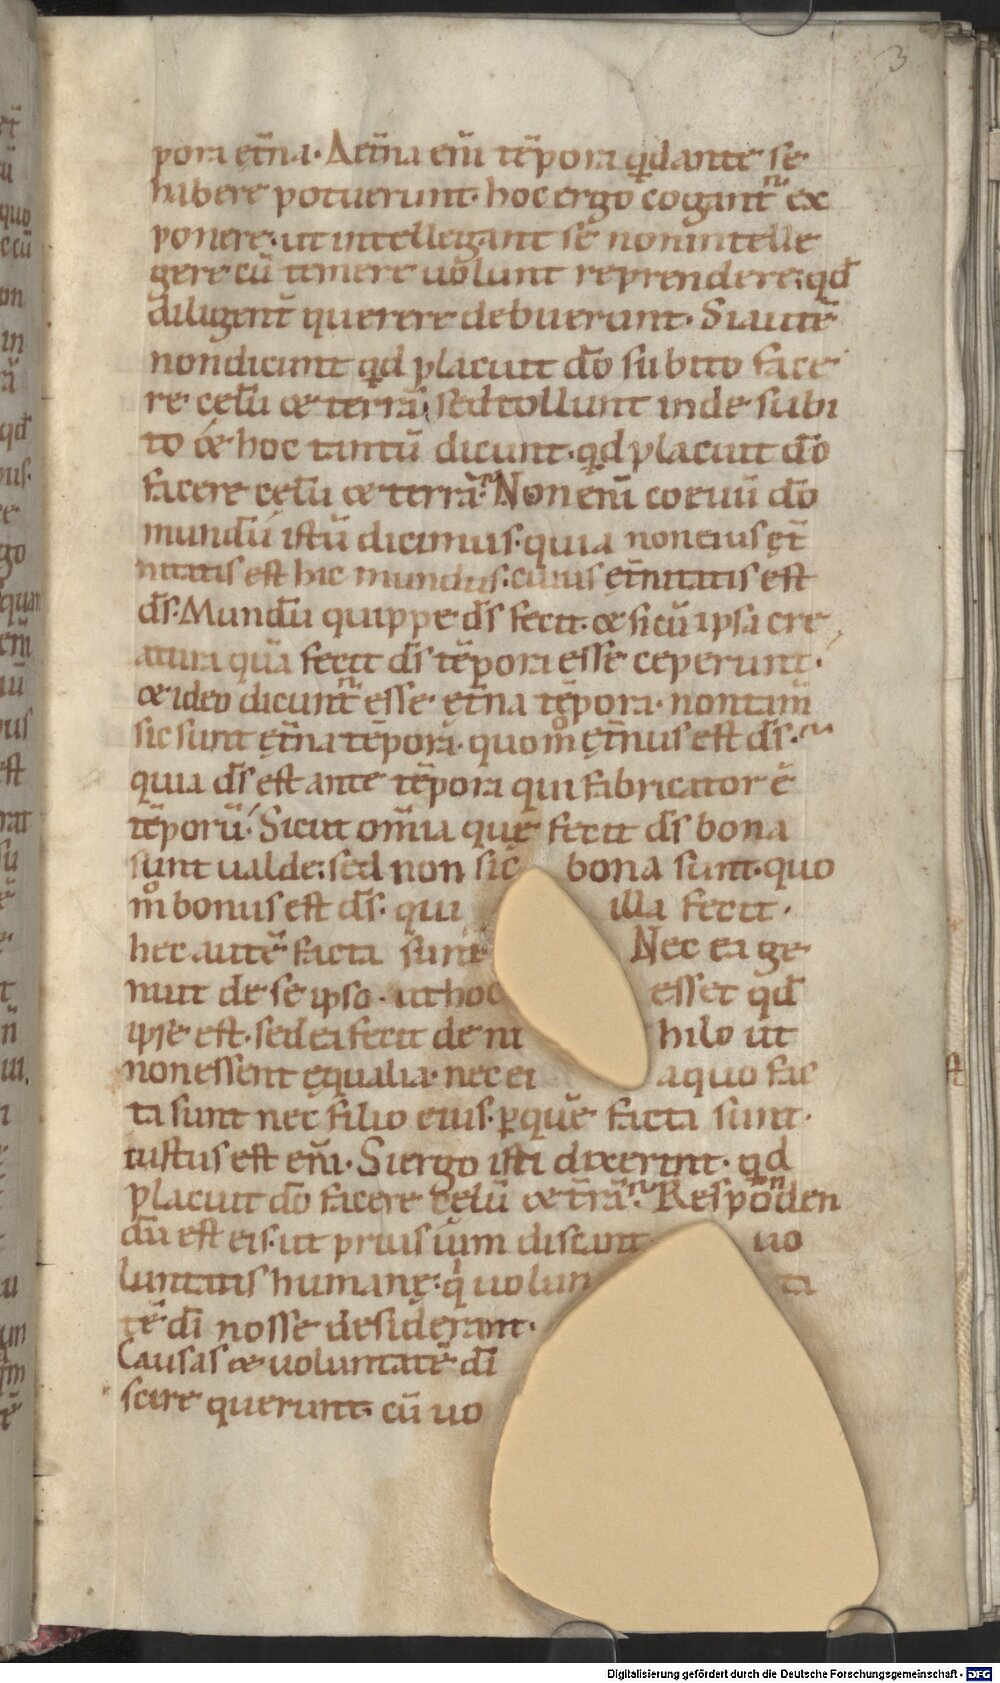 3
pora et̄na. Aet̄na em̄ tēpora qd ante se
habere potuerunt. hoc ergo cogant̄ ex
ponere. ut intellegant se non intelle
gere cū temere uolunt reprendere. qd̄
diligent̄ querere debuerant. Si autē
non dicunt qd placuit do̅ subito face
re celū & terrā, sed tollunt inde subi
to & hoc tantū dicunt. qd placuit do̅
facere celū & terrā. Non em̄ coeuū do̅
mundū istū dicimus. quia non eius et̄
nitatis est hic mundus. cuius ęt̄nitatis est
ds̄. Mundū quippe ds̄ fecit. & sicū ipsa cre
atura quā fecit ds̄ tēpora esse ceperunt.
& ideo dicunt̄ esse ęt̄na tēpora. non tam̄
sic sunt ęt̄na tēpora. quom̊ ęt̄nus est ds̄.
quia ds̄ est ante tēpora qui fabricator ē
tēporū. Sicut om̄ia que fecit ds̄ bona
sunt ualde. sed non sic bona sunt. quo
m̊ bonus est ds̄. qui illa fecit.
hec autē facta sunt Nec ea ge
nuit de se ipso. ut hoc esset qd̄
ipse est. sed ea fecit de ni hilo ut
non essent ęqualia. nec ei a quo fac
ta sunt nec filio eius. ꝑ quē facta sunt.
iustus est em̄. Si ergo isti dixerint. qd
placuit do̅ facere celū & t̄rā. Responden
dū est eis. ut prius iam discant uo
luntatis humanę. q̇ uolun ta
tē dī nosse desiderant.
Causas & uoluntatē dī
scire querunt. cū uo
Digitalisierung gefördert durch die Deutsche Forschungsgemeinschaft - DFG